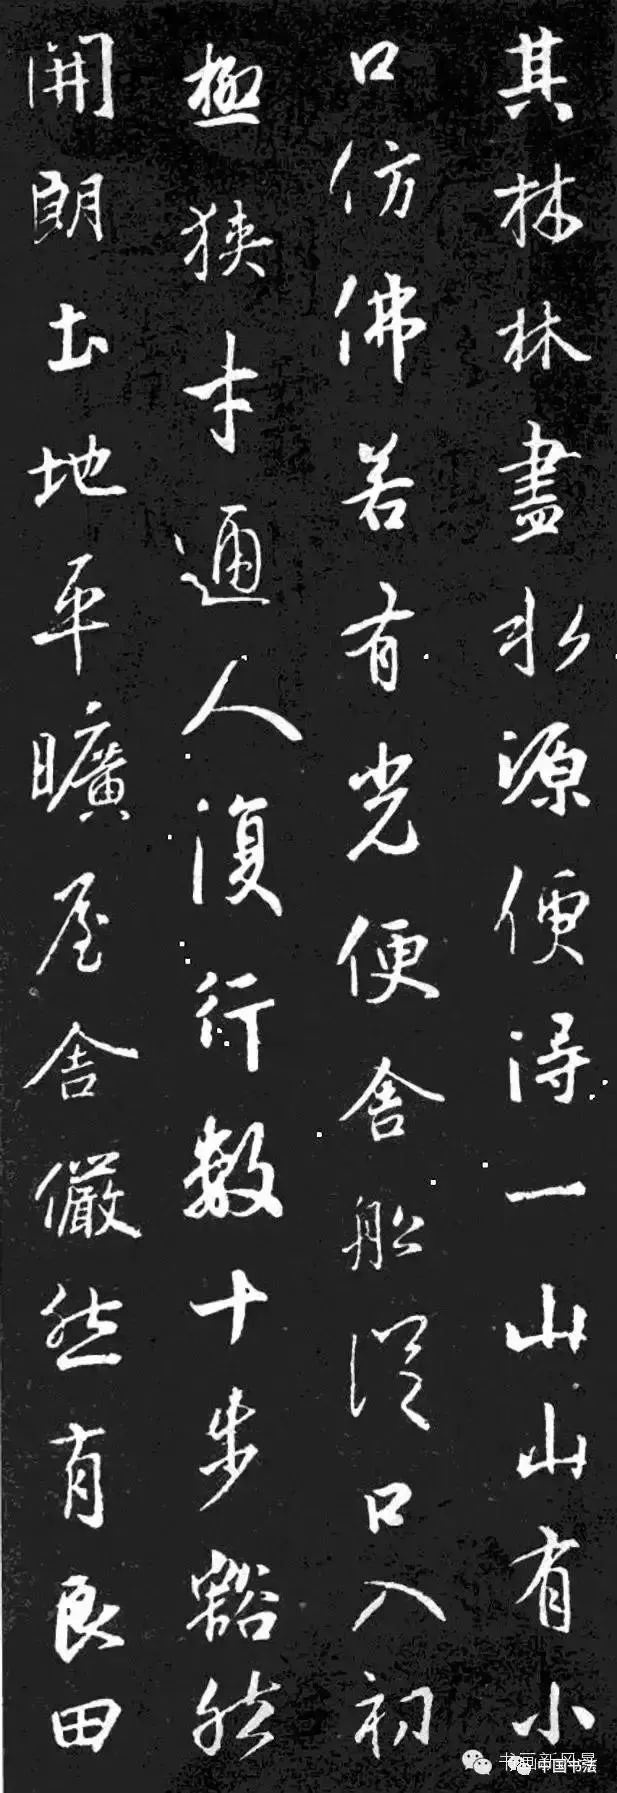 其林林盡水源便得一山山有小
口仿佛若有光便舍船從口入初
極狹才通人復行數十步豁然
開朗土地平曠屋舍儼然有良田
中国书法